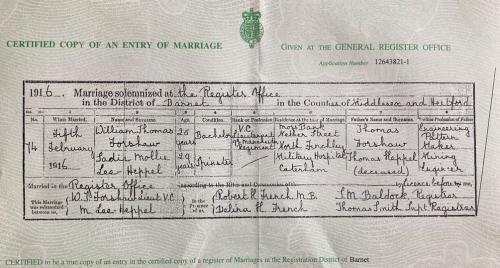 CERTIFIED COPY OF AN ENTRY OF MARRIAGE
GIVEN AT THE GENERAL REGISTER OFFICE
Application Number 12643821-1
1916. Marriage solemnized at the Register Office
in the District of Barnet in the Counties of Middlesex and Hertford
No. When Married. Name and Surname. Age. Condition. Rank or Profession. Residence at the time of Marriage. Father's Name and Surname. Rank or Profession of Father.
14
Fifth
February
1916
William Thomas
Forshaw
25
years
Bachelor
V.C.
Lieutenant
Manchester
Regiment
Moss Bank
Nether Street
North Finchley
Thomas
Forshaw
Engineering
Pattern
Maker
Sadie Mollie
Lee-Heppel
29
years
Spinster
Military Hospital
Caterham
Thomas Heppel
(deceased)
Mining
Engineer
Married in the Register Office according to the Rites and Ceremonies of by Licence before me,
This Marriage
was solemnized
between us,
W. T. Forshaw Lieut V.C.
M. Lee-Heppel
in the
Presence
of us,
Robert H. French M.B.
Delina H. French
Baldock Registrar
Thomas Smith Supt Registrar
CERTIFIED to be a true copy of an entry in the certified copy of a register of Marriages in the Registration District of Barnet